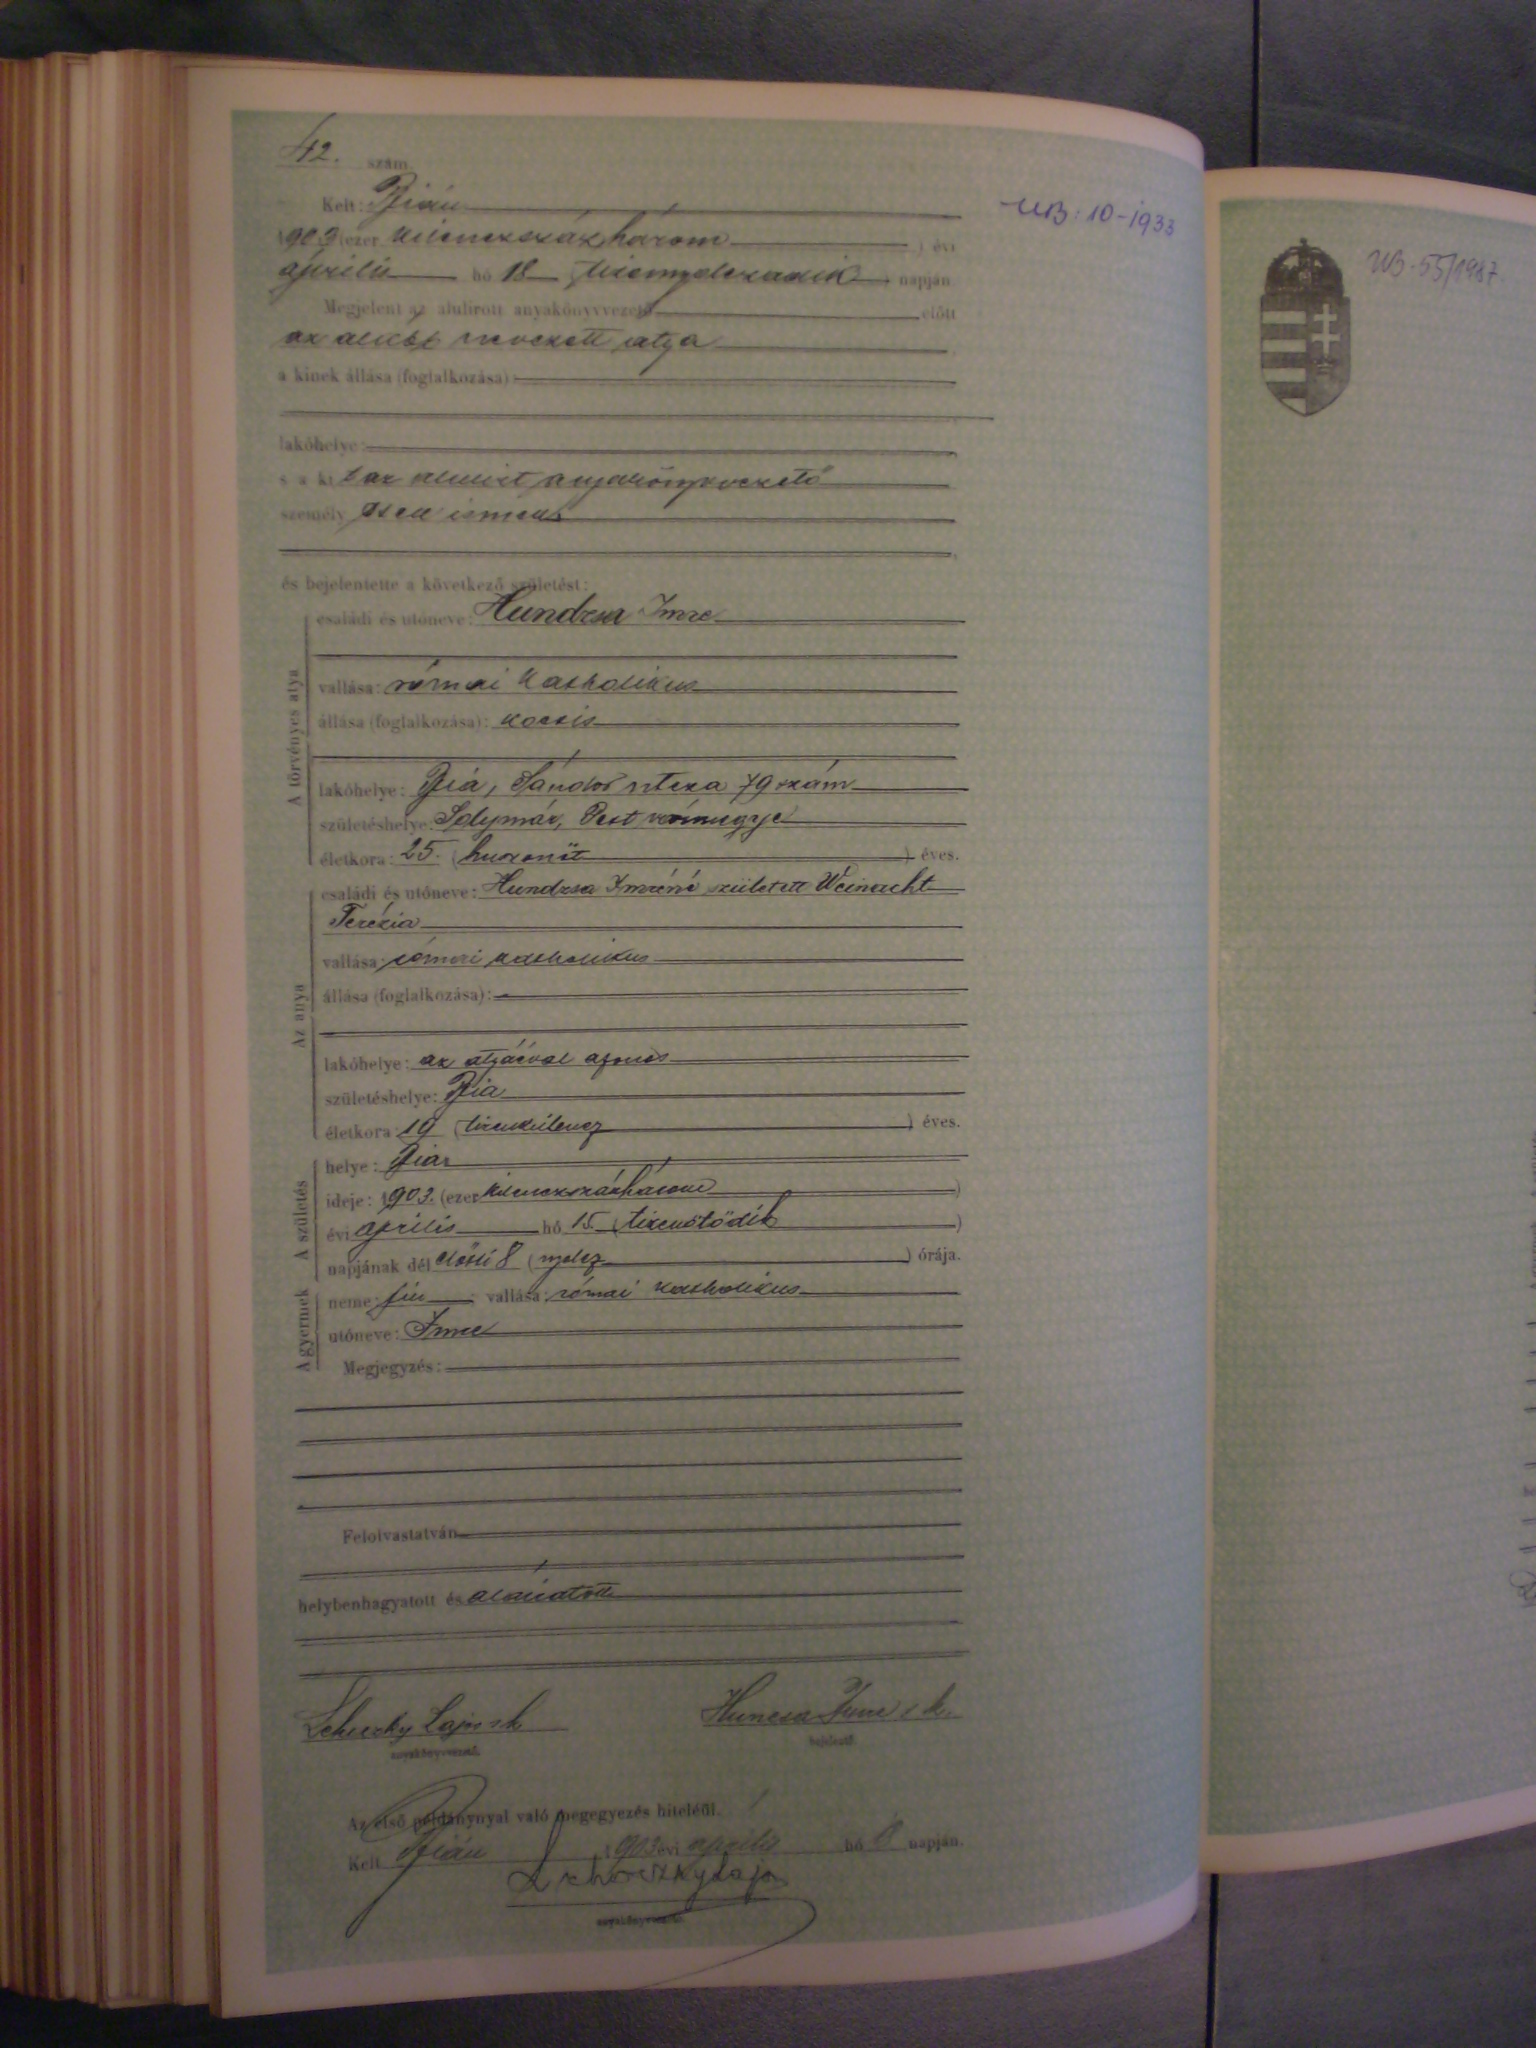 42. szám.
Kelt: Bián
1903 (ezer kilenczszázhárom ) évi
április hó 18 (tizennyolczadik) napján
Megjelent az alulirott anyakönyvvezető előtt
az alább nevezett atya
a kinek állása (foglalkozása):
lakóhelye:
s a kit az alulirt anyakönyvvezető
személyesen ismer
és bejelentette a következő születést:
A törvényes atya
családi és utóneve: Hundzsa Imre
vallása: római katholikus
állása (foglalkozása): kocsis
lakóhelye: Bia, Sándor utcza 79 szám
születéshelye: Solymár, Pest vármegye
életkora: 25. (huszonöt ) éves.
Az anya
családi és utóneve: Hundzsa Imréné született Weinacht
Terézia
vallása: római katholikus
állása (foglalkozása):
lakóhelye: az atyáéval azonos
születéshelye: Bia
életkora: 19 (tizenkilencz ) éves.
A születés
helye: Bia
ideje: 1903. (ezer kilenczszázhárom )
évi április hó 15 (tizenötödik )
napjának dél előtti 8 (nyolcz ) órája.
A gyermek
neme: fiu vallása: római katholikus
utóneve: Imre
Megjegyzés:
Felolvastatván
helybenhagyatott és aláiratott
Lajos sk
anyakönyvvezető.
Huncsa Imre s k.
bejelentő.
Az első példánynyal való megegyezés hiteléül.
Kelt Bián 1903 évi április hó napján.
anyakönyvvezető.
UB: 10-1933
UB-55/1987.